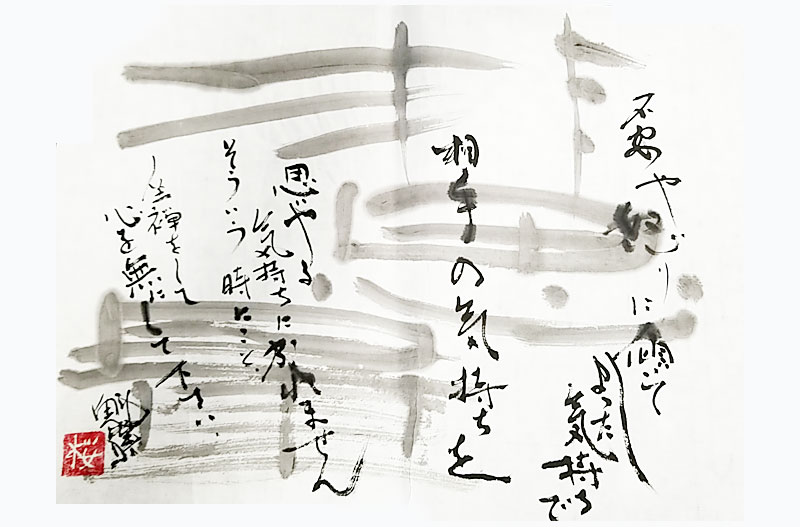 不安や怒りに傾いて
しまった
気持ちで
相手の気持ちを
思いやる
気持ちになれません
そういう時にこそ、
坐禅をして
心を無にして下さい